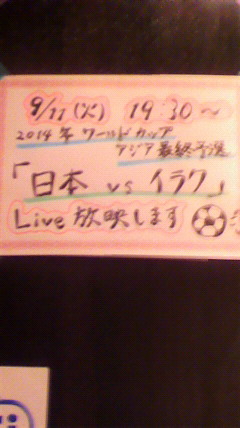 9/11(火) 19:30～
2014年 ワールドカップ
アジア最終予選
「日本 vs イラク」
Live 放映します